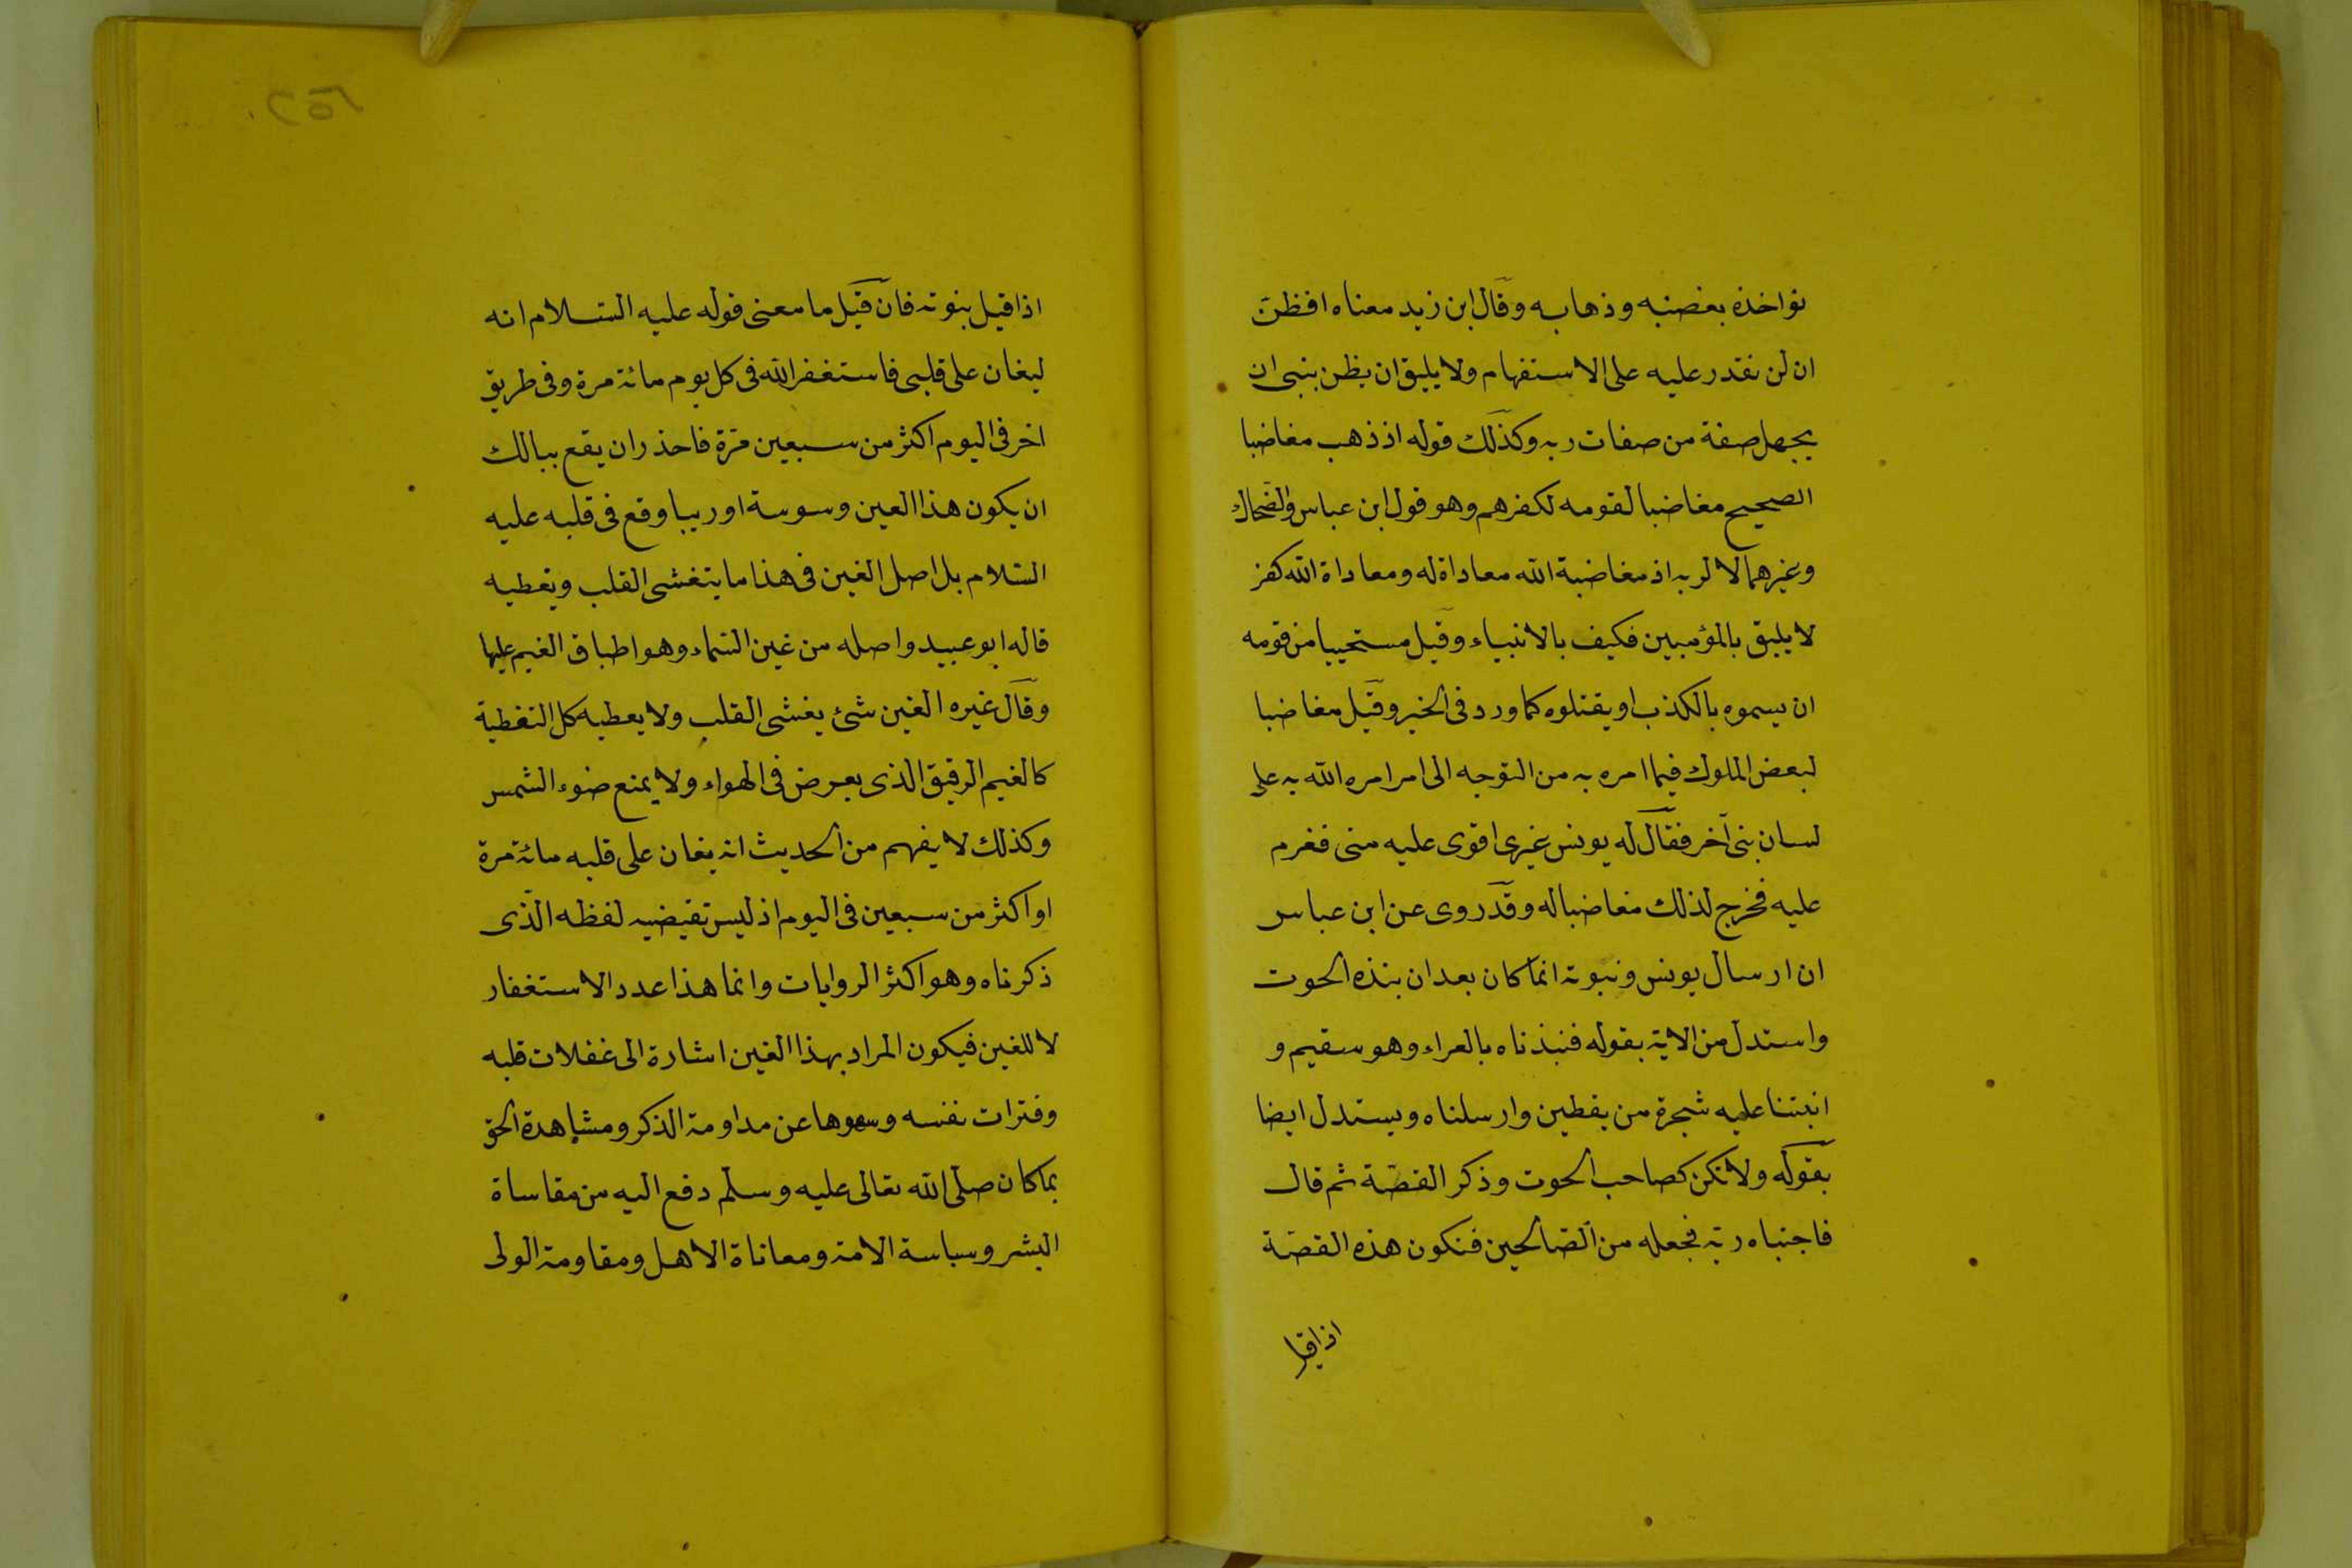 نواخذه بغضبه وذهابه وقال ابن زيد معناه افظن
ان لن نقدر عليه على الاستفهام ولا يليق ان يظن بنبى ان
يجهل صفة من صفات ربه وكذلك قوله اذ ذهب مغاضبا
الصحيح مغاضبا لقومه لكفرهم وهو قول ابن عباس والضحاك
وغيرهما لا لربه اذ مغاضبة الله معاداة له ومعاداة الله كفر
لا يليق بالمؤمنين فكيف بالانبياء وقيل مستحييا من قومه
ان يسموه بالكذب او يقتلوه كما ورد فى الخبر وقيل مغاضبا
لبعض الملوك فيما امره به من التوجه الى امر امره الله به على
لسان نبى آخر فقال له يونس غيرى اقوى عليه منى فعزم
عليه فخرج لذلك مغاضبا له وقد روى عن ابن عباس
ان ارسال يونس ونبوته انما كان بعد ان نبذه الحوت
واستدل من الاية بقوله فنبذناه بالعراء وهو سقيم و
انبتنا عليه شجرة من يقطين وارسلناه ويستدل ايضا
بقوله ولا تكن كصاحب الحوت وذكر القصة ثم قال
فاجتباه ربه فجعله من الصالحين فتكون هذه القصة
اذا قيل
٢٥٢
اذا قيل بنوته فان قيل ما معنى قوله عليه السلام انه
ليغان على قلبى فاستغفر الله فى كل يوم مائة مرة وفى طريق
اخر فى اليوم اكثر من سبعين مرة فاحذر ان يقع ببالك
ان يكون هذا العين وسوسة او ريبا وقع فى قلبه عليه
السلام بل اصل الغين فى هذا ما يتغشى القلب ويغطيه
قاله ابو عبيد واصله من غين السماء وهو اطباق الغيم عليها
وقال غيره الغين شئ يغشى القلب ولا يغطيه كل التغطية
كالغيم الرقيق الذى يعرض فى الهواء ولا يمنع ضوء الشمس
وكذلك لا يفهم من الحديث انه يغان على قلبه مائة مرة
او اكثر من سبعين فى اليوم اذ ليس تقيضيه لفظه الذى
ذكرناه وهو اكثر الروايات وانما هذا عدد الاستغفار
لا للغين فيكون المراد بهذا الغين اشارة الى غفلات قلبه
وفترات نفسه وسهوها عن مداومة الذكر ومشاهدة الحق
بما كان صلى الله تعالى عليه وسلم دفع اليه من مقاساة
البشر وسياسة الامة ومعاناة الاهل ومقاومة الولى